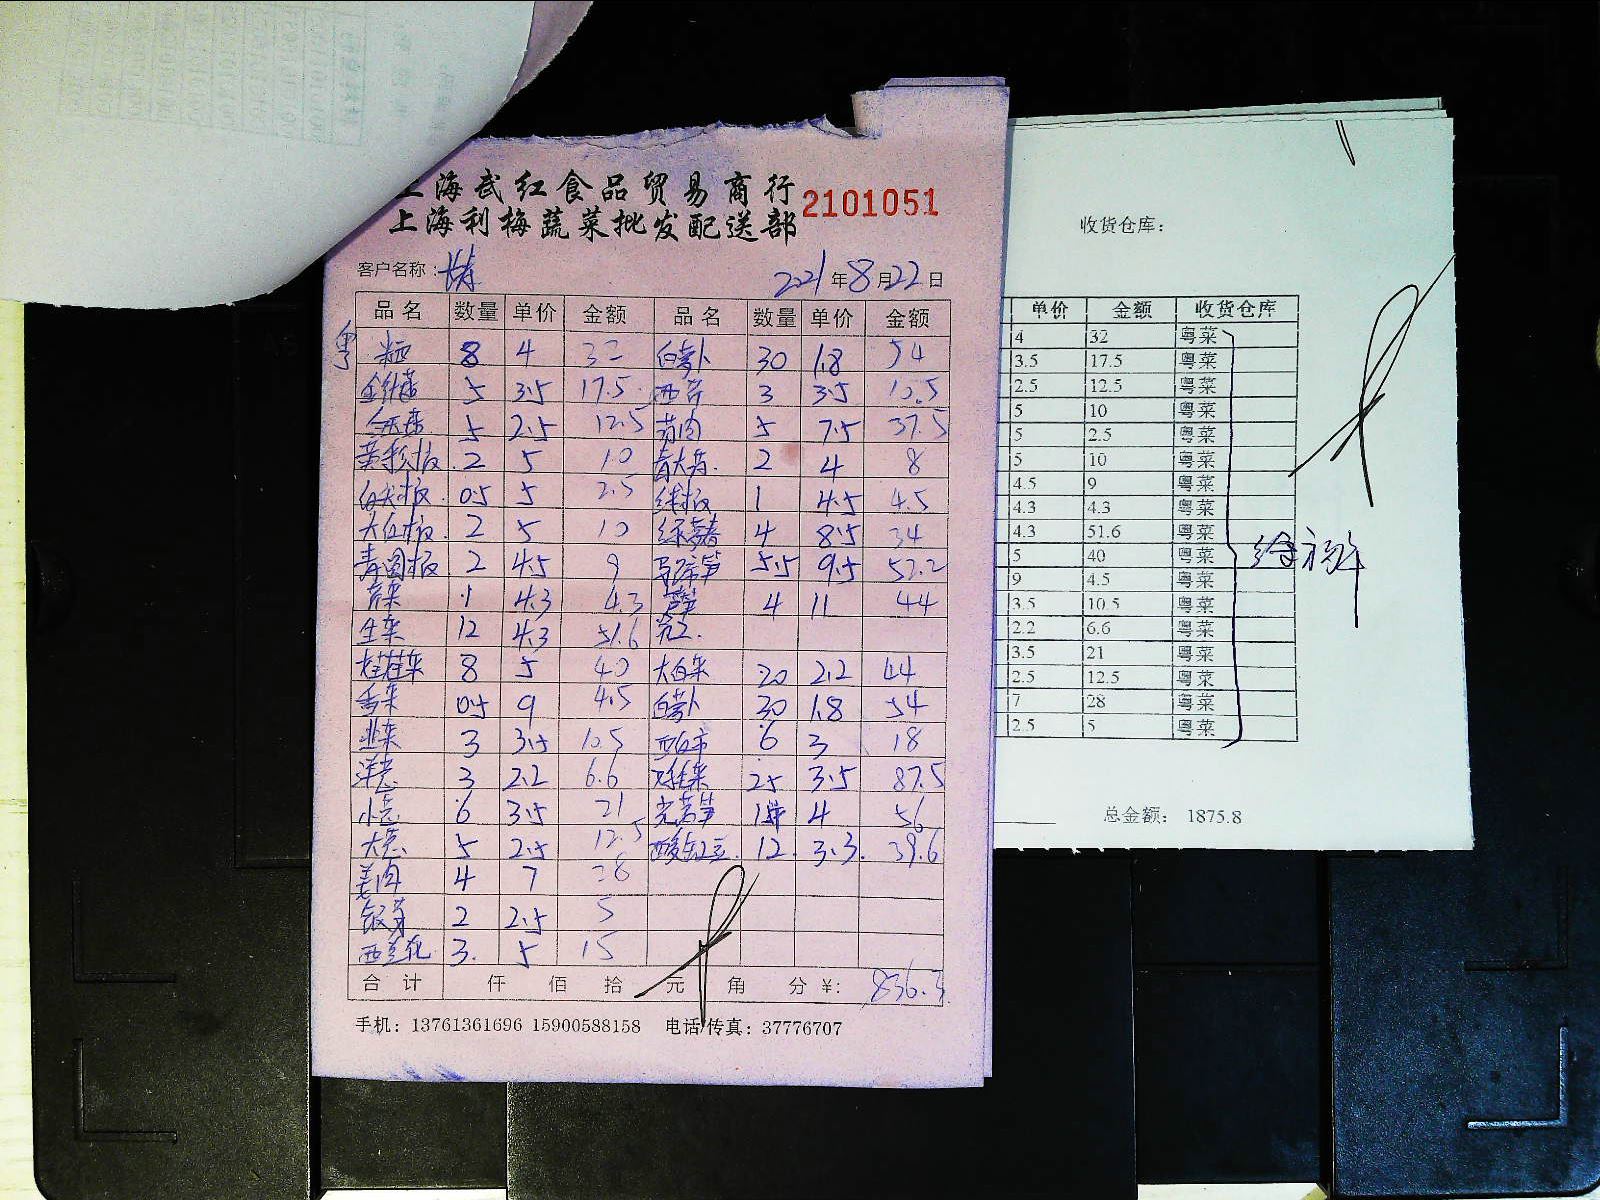 上海武红食品贸易商行
2101051
上海利梅蔬菜批发配送部
客户名称：
2021年8月22日
品名 数量 单价 金额 品名 数量 单价 金额
粤
8 4 32 白萝卜 30 1.8 54
5 3.5 17.5 西芹 3 3.5 10.5
5 2.5 12.5 5 7.5 37.5
2 5 10 2 4 8
0.5 5 2.5 1 4.5 4.5
2 5 10 4 8.5 34
青圆椒 2 4.5 9 5.5 9.5 52.2
芹菜 1 4.3 4.3 4 11 44
生菜 12 4.3 51.6
8 5 40 大白菜 20 2.2 44
香菜 0.5 9 4.5 白萝卜 30 1.8 54
韭菜 3 3.5 10.5 6 3 18
洋葱 3 2.2 6.6 25 3.5 87.5
小葱 6 3.5 21 4 56
大葱 5 2.5 12.5 酸豇豆 12 3.3 39.6
姜肉 4 7 28
银芽 2 2.5 5
西兰花 3 5 15
合计 仟 佰 拾 元 角 分 ¥: 836.3
手机：13761361696 15900588158 电话/传真：37776707
收货仓库：
单价 金额 收货仓库
4 32 粤菜
3.5 17.5 粤菜
2.5 12.5 粤菜
5 10 粤菜
5 2.5 粤菜
5 10 粤菜
4.5 9 粤菜
4.3 4.3 粤菜
4.3 51.6 粤菜
5 40 粤菜
9 4.5 粤菜
3.5 10.5 粤菜
2.2 6.6 粤菜
3.5 21 粤菜
2.5 12.5 粤菜
7 28 粤菜
2.5 5 粤菜
总金额： 1875.8